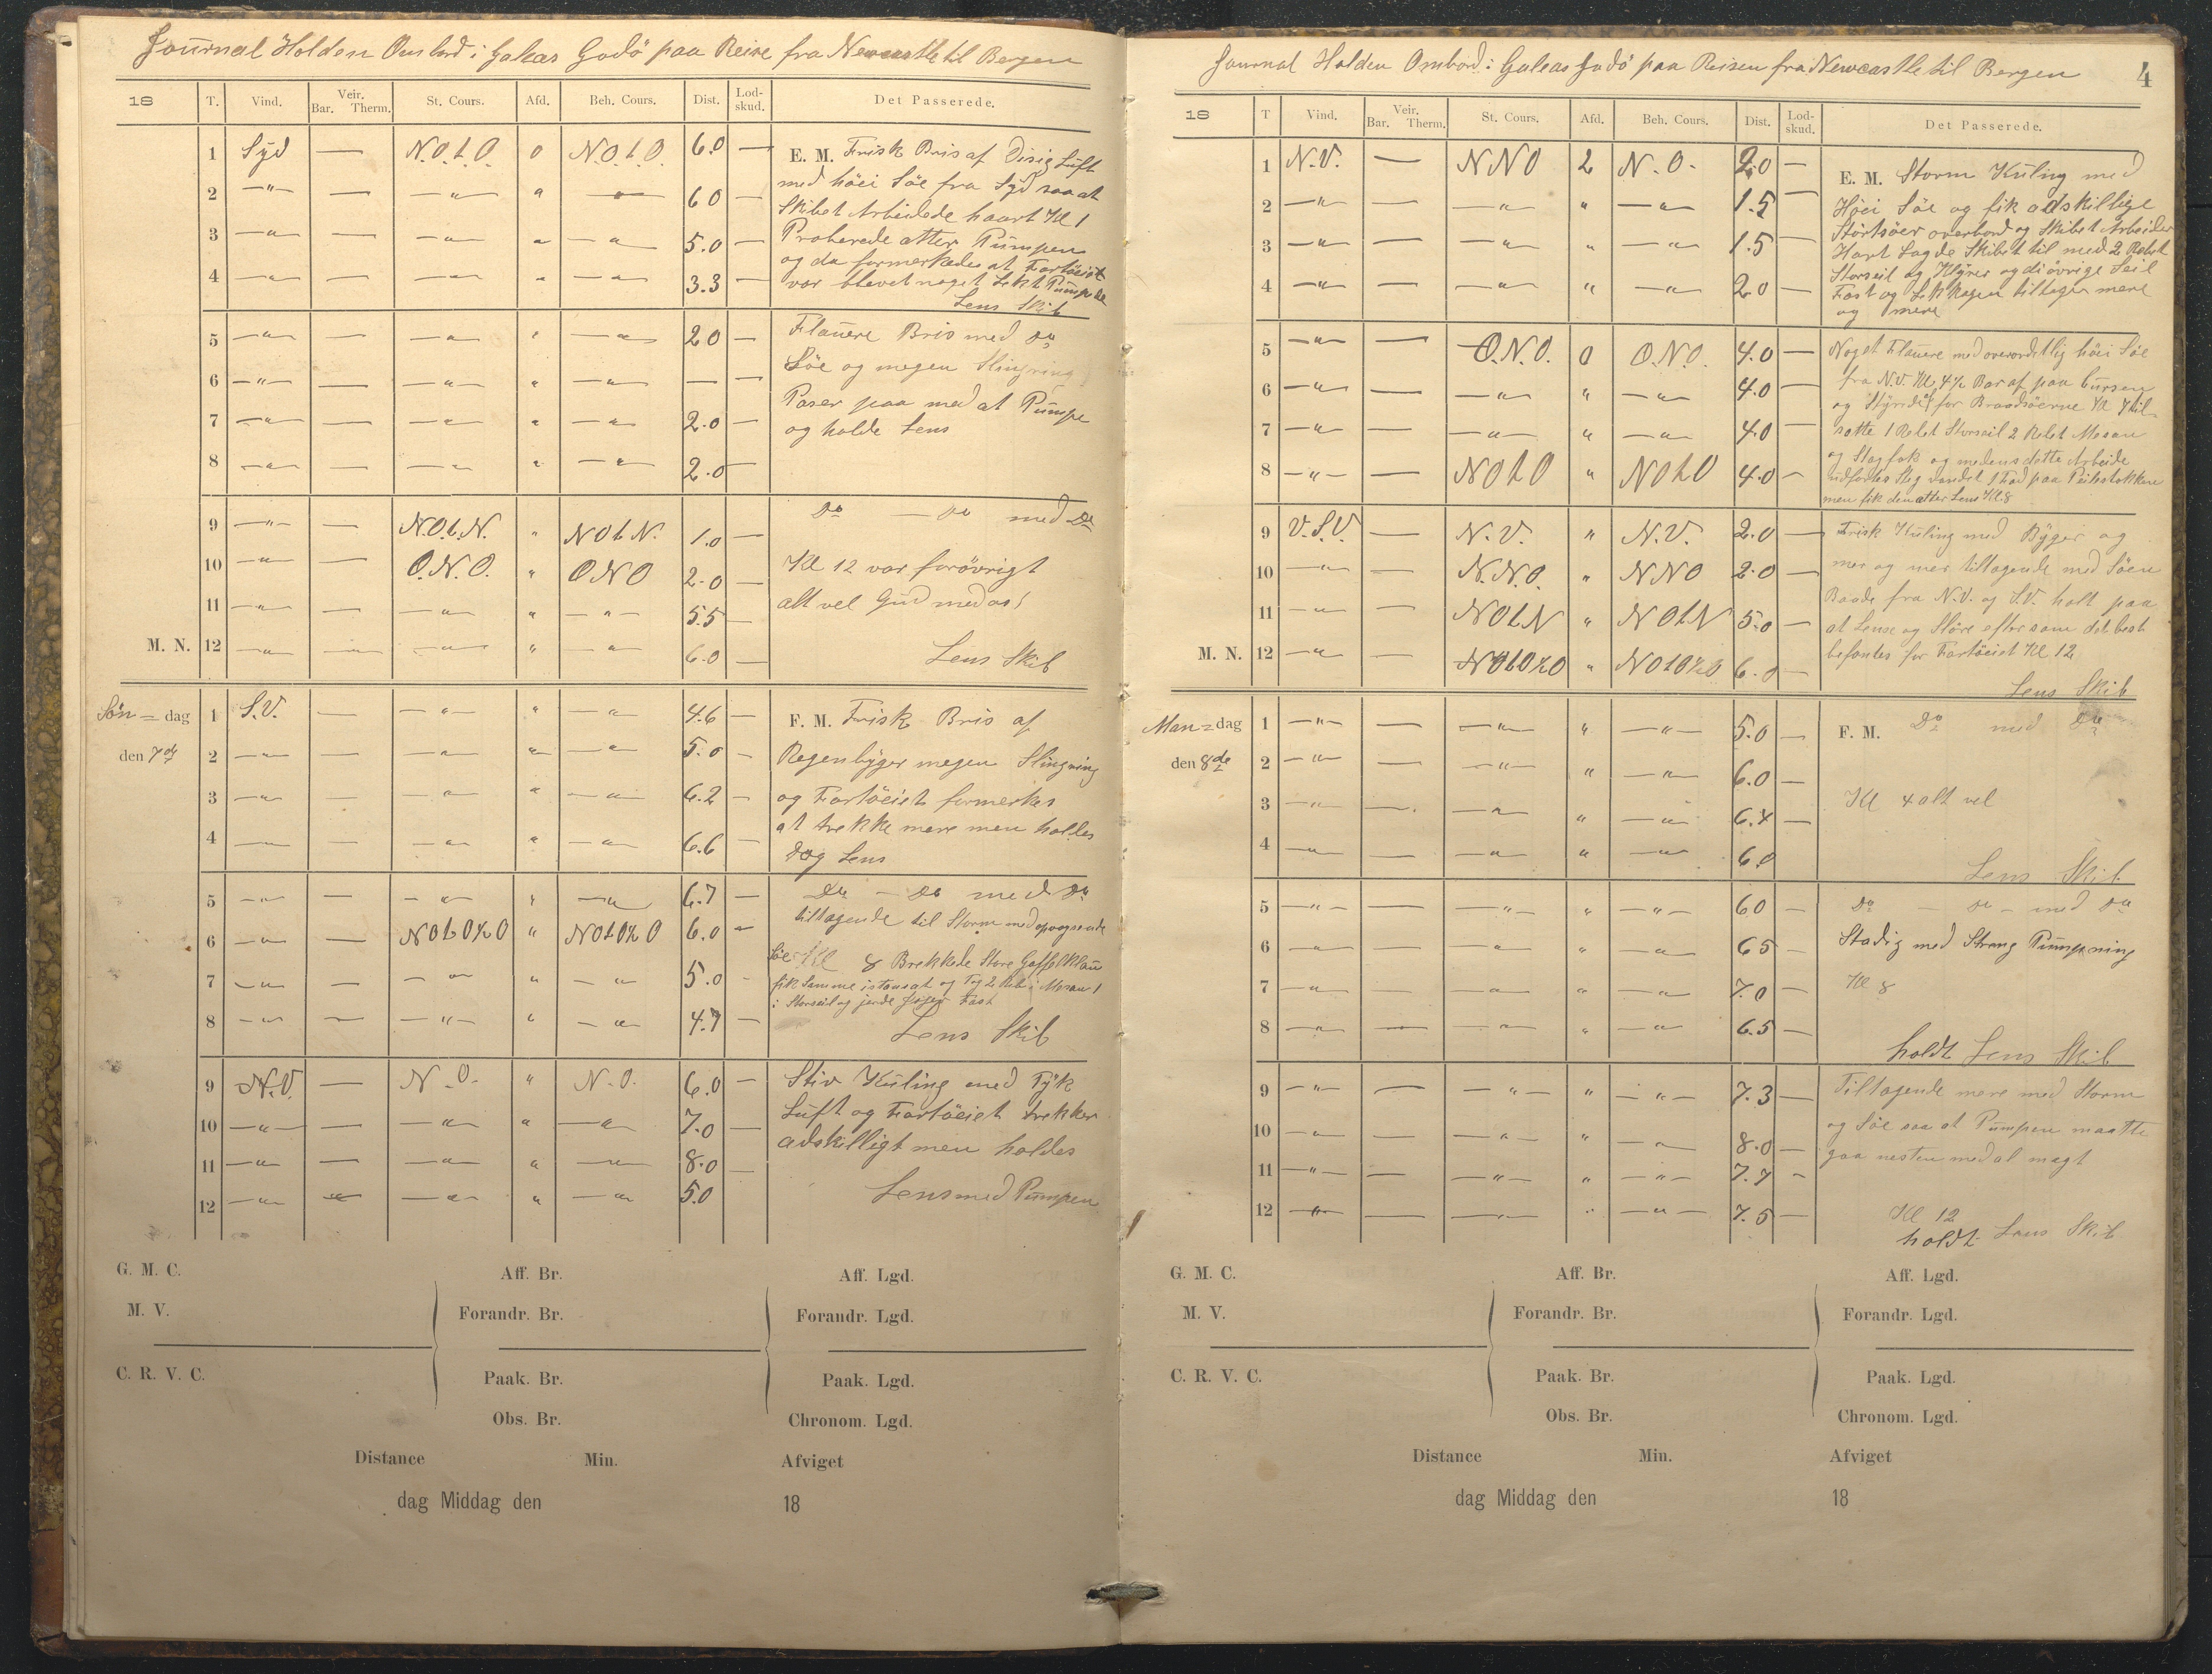 Journal Holden Ombord i Galeas Godö paa Reise fra Newcastle til Bergen
18 T. Vind. Veir. Bar. Therm. St. Cours. Afd. Beh. Cours. Dist. Lod-skud. Det Passerede.
1 Syd — N.O.t.O. 0 N.O.t.O. 6.0 — E. M. Frisk Bris af Disig Luft
2 —"— — —"— " —"— 6 0 — med höei Söe fra Syd saa at
Skibet Arbeidede haart Kl 1
3 —"— — —"— " —"— 5.0 — Proberede atter Pumpen
og da formerkedes at Fartöeiet
4 —"— — —"— " —"— 3.3 — var blevet noget Lekt Pumpede
Lens Skib
5 —"— — —"— " —"— 2 0 — Flauere Bris med Do
Söe og megen Slingring
6 —"— — —"— " —"— — —
Paser paa med at Pumpe
7 —"— — —"— " —"— 2.0 — og holde Lens
8 —"— — —"— " —"— 2.0 —
9 —"— — N.O.t.N. " N O t N. 1.0 — Do — Do med Do
10 —"— — O.N.O. " O N O 2.0 — Kl 12 var forövrigt
11 —"— — —"— " —"— 5.5 — alt vel Gud med os!
M. N. 12 —"— — —"— " —"— 6.0 — Lens Skib
Sön = dag 1 S.V. — —"— " —"— 4.6 — F. M. Frisk Bris af
den 7de 2 —"— — —"— " —"— 5.0 — Regenbyger megen Slingring
3 —"— — —"— " —"— 6.2 — og Fartöeiet formerkes
at trekke mere men holdes
4 —"— — —"— " —"— 6.6 — dog Lens
5 —"— — —"— " —"— 6.7 — Do — Do med Do
tiltagende til Storm med opvogsende
6 —"— — N O t O ½ O " N O t O ½ O 6.0 —
Söe Kl 8 Brekkede Store Gaffel Klau
7 —"— — —"— " —"— 5.0 — fik Samme istansat og Tog 2 Reb i Mesan 1
i Storseil og jorde Jager Fast
8 —"— — —"— " —"— 4.7 — Lens Skib
9 N.V. — N.O. " N.O. 6.0 — Stiv Kuling med Tyk
10 —"— — —"— " —"— 7.0 — Luft og Fartöeiet trekker
11 —"— — —"— " —"— 8.0 — adskilligt men holdes
12 —"— — —"— " —"— 5.0 Lens med Pumpen
G. M. C. Aff. Br. Aff. Lgd.
M. V. Forandr. Br. Forandr. Lgd.
C. R. V. C. Paak. Br. Paak. Lgd.
Obs. Br. Chronom. Lgd.
Distance Min. Afviget
dag Middag den 18
Journal Holden Ombord i Galeas Godö paa Reisen fra Newcastle til Bergen 4
18 T Vind. Veir. Bar. Therm. St. Cours. Afd. Beh. Cours. Dist. Lod-skud. Det Passerede.
1 N.V. — N N O 2 N.O. 2.0 — E. M. Storm Kuling med
2 —"— — —"— " —"— 1.5 — Höei Söe og fik adskillige
Störtsöer overbord og Skibet Arbeider
3 —"— — —"— " —"— 1.5 — Hart Lagde Skibet til med 2 Rebet
Storseil og Klyver og di övrige Seil
4 —"— — —"— " —"— 2.0 — Fast og Lekkagen tiltager mere
og mere
5 —"— — O.N.O. 0 O.N.O. 4.0 — Noget Flauere med overordetlig höei Söe
6 —"— — —"— " —"— 4.0 — fra N.V. Kl 4½ Bar af paa Cursen
og Styrde af for Braadsöerne Kl 7 til-
7 —"— — —"— " —"— 4.0 — satte 1 Rebet Storseil 2 Rebet Mesan
og Stagfok og medens dette Arbeide
8 —"— — N O t O " N O t O 4.0 — udfortes Steg vandet 1 Fod paa Peilestokken
men fik den atter Lens Kl 8
9 V.S.V. — N.V. " N.V. 2.0 — Frisk Kuling med Byger og
10 —"— — N.N.O. " N N O 2.0 — mer og mer tiltagende med Söen
Baade fra N.V. og S.V. holt paa
11 —"— — N O t N " N O t N 5.0 — at Lense og Störe eftersom det best
M. N. 12 —"— — N O t O ½ O " N O t O ½ O 6.0 — befantes for Fartöeiet Kl 12
Lens Skib
Man = dag 1 —"— — —"— " —"— 5.0 — F. M. Do med Do
den 8de 2 —"— — —"— " —"— 6.0 —
3 —"— — —"— " —"— 6.4 — Kl 4 alt vel
4 —"— — —"— " —"— 6.0 Lens Skib
5 —"— — —"— " —"— 6 0 — Do — Do — med Do
6 —"— — —"— " —"— 6 5 — Stadig med Streng Pumpning
7 —"— — —"— " —"— 7.0 — Kl 8
8 —"— — —"— " —"— 6.5 — holdt Lens Skib
9 —"— — —"— " —"— 7.3 — Tiltagende mere med Storm
10 —"— — —"— " —"— 8.0 — og Söe saa at Pumpen maatte
11 —"— — —"— " —"— 7.7 — gaa nesten med al magt
12 —"— — —"— " —"— 7.5 — Kl 12
holdt Lens Skib
G. M. C. Aff. Br. Aff. Lgd.
M. V. Forandr. Br. Forandr. Lgd.
C. R. V. C. Paak. Br. Paak. Lgd.
Obs. Br. Chronom. Lgd.
Distance Min. Afviget
dag Middag den 18